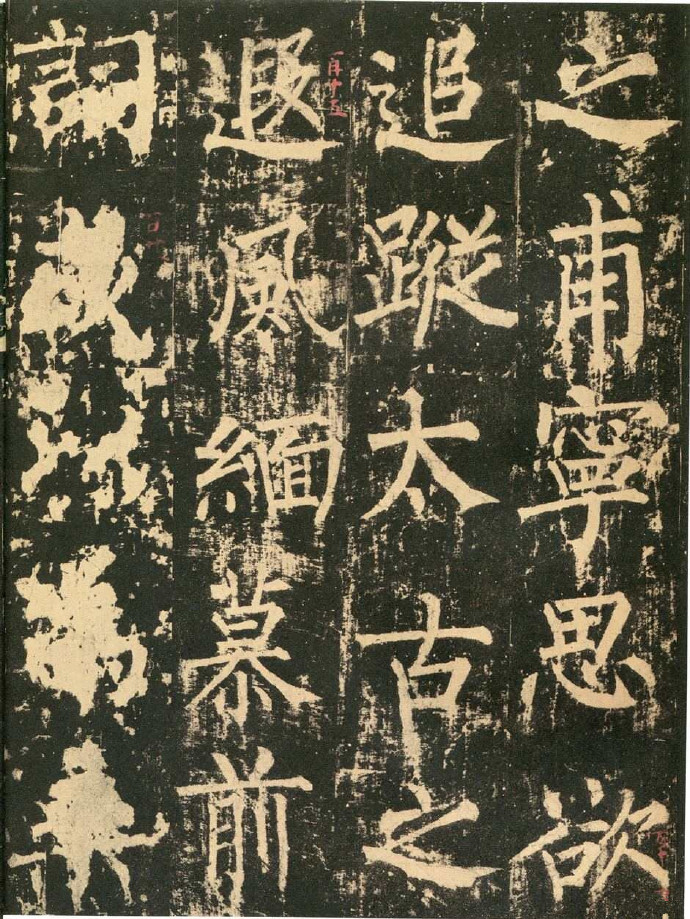 之甫寧思欲
追蹤太古之
遐風緬慕前
詞